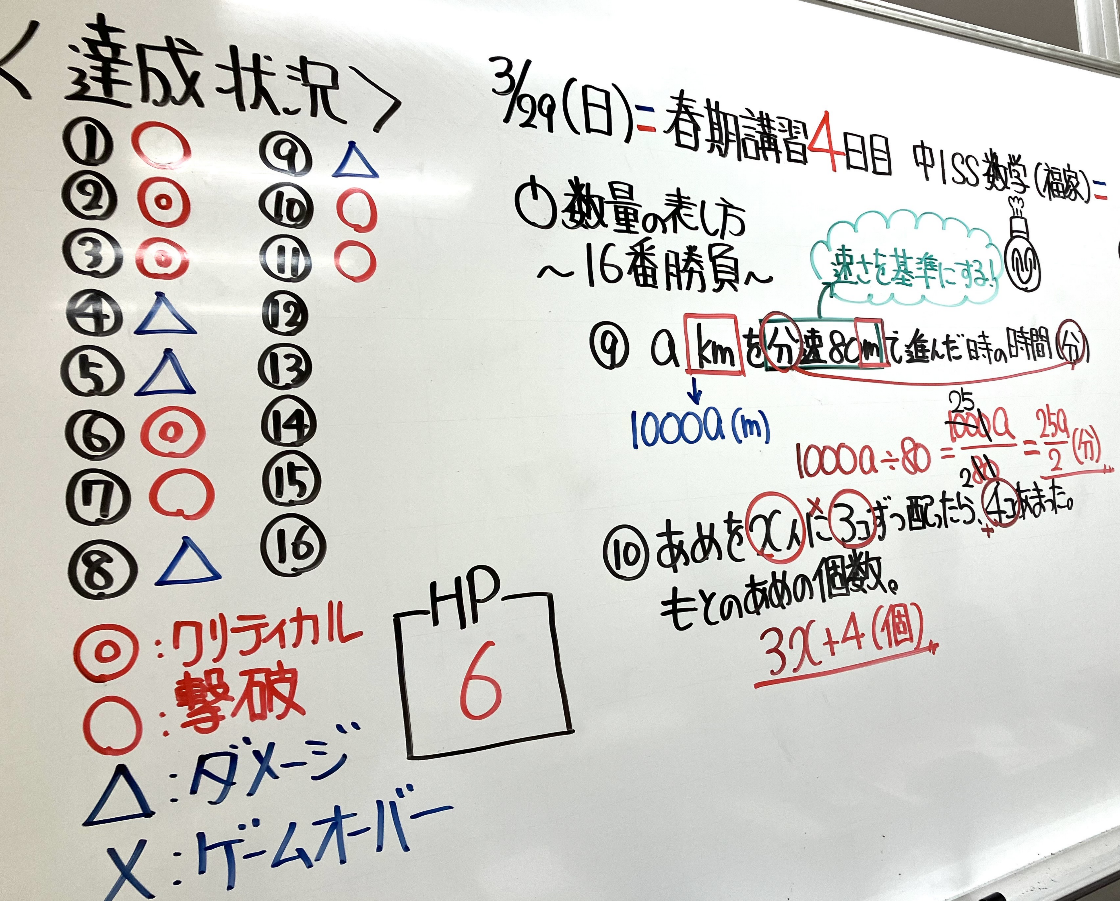 〈達成状況〉
① ○ ⑨ △
② ◎ ⑩ ○
③ ◎ ⑪ ○
④ △ ⑫
⑤ △ ⑬
⑥ ◎ ⑭
⑦ ○ ⑮
⑧ △ ⑯
◎:クリティカル
○:撃破
△:ダメージ
×:ゲームオーバー
HP
6
3/29(日)=春期講習4日目 中1SS数学(福家)=
数量の表し方
~16番勝負~
速さを基準にする!
⑨ a kmを分速80mで進んだ時の時間(分)
1000a(m)
1000a÷80=1000a/80=25a/2(分)
25
2
⑩ あめをx人に3コずつ配ったら、4コあまった。
×
+
もとのあめの個数。
3x+4(個)